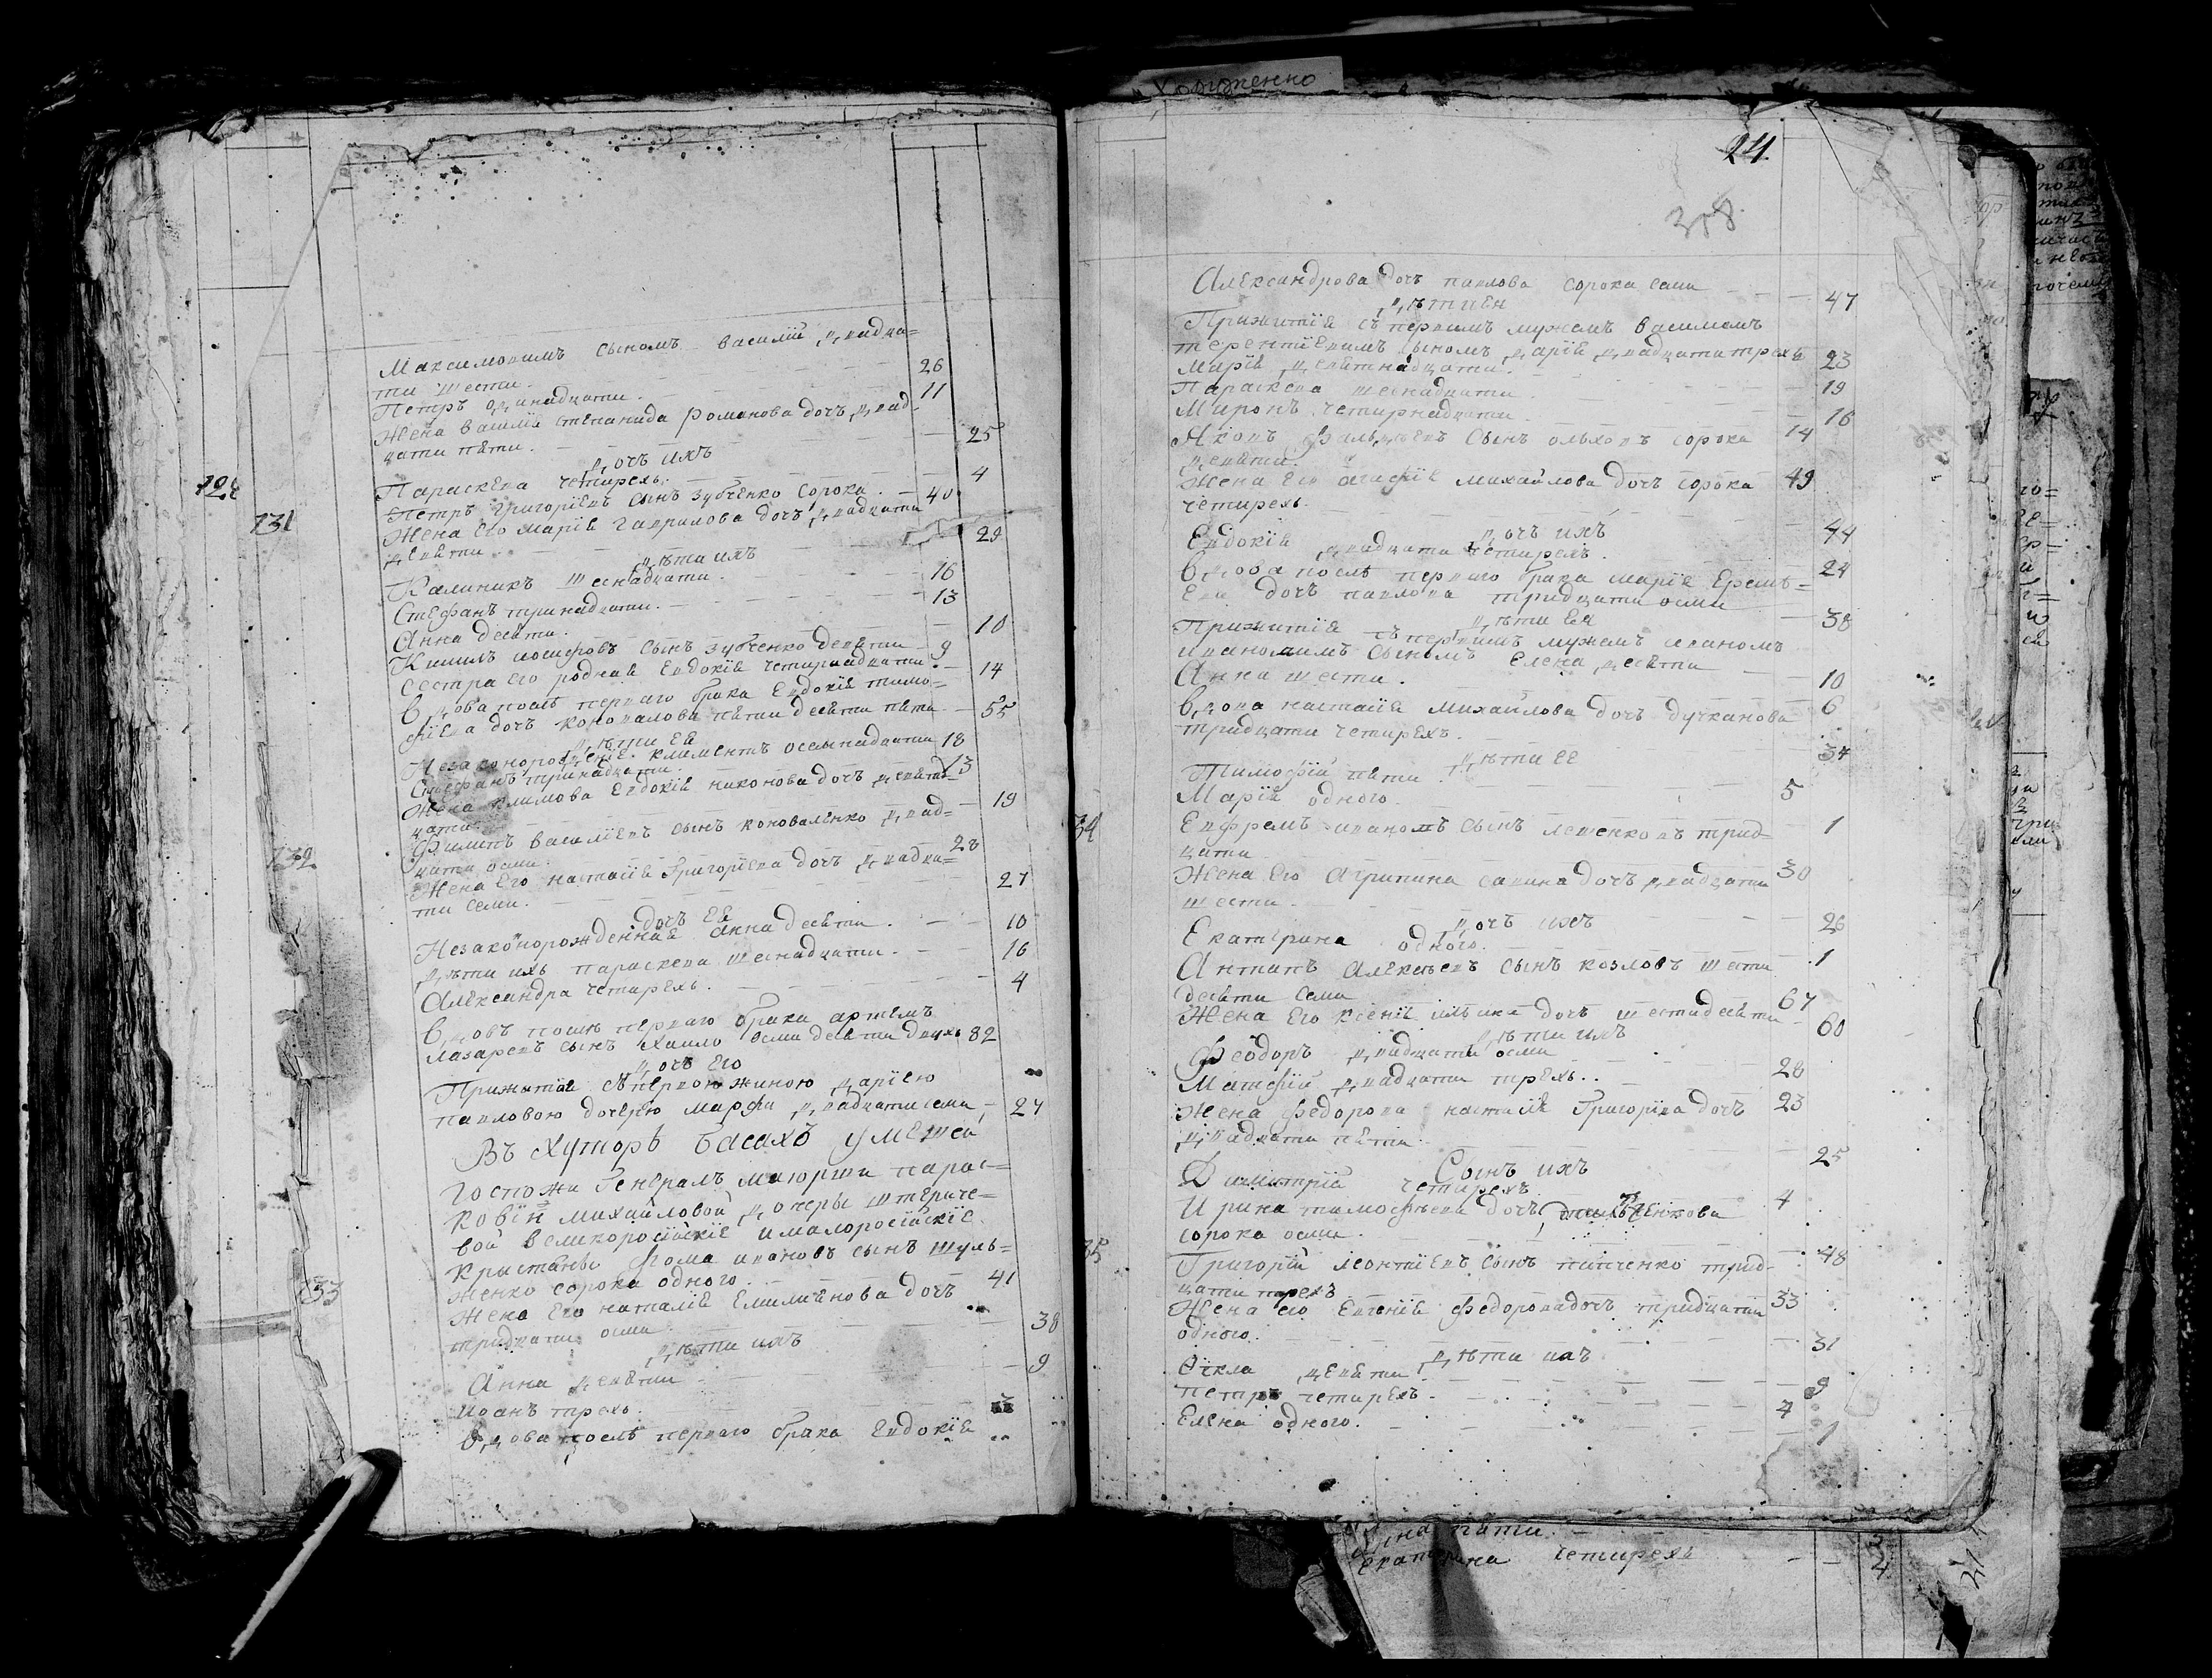 Максимовимъ сыномъ василій двадца=
ти шести. 26
Петръ одинадцати. 11
Жена василія степанида романова дочъ двад-
цати пяти. 25
дочъ ихъ
Параскева четырехъ. 4
128
131 Петръ григоріевъ сынъ зубченко сорока. 40
Жена его марія гаврилова дочъ двадцати
девяти 29
дѣти ихъ
Калиникъ шеснадцати. 16
Стефанъ тринадцати. 13
Анна десяти. 10
сынъ зубченко девяти 9
Сестра его родная Евдокія четирнадцати. 14
Вдова послѣ перваго брака Евдокія тимо=
фіева дочъ коновалова пяти десяти пяти 55
дѣти ея
Незаконорожденіе климентъ осьмнадцати 18
Стефанъ тринадцати. 13
Жена климова Евдокія никонова дочъ девят=
цати 19
132 Филипъ василіевъ сынъ коноваленко двад=
цати осми. 28
Жена Его настасія Григоріева дочъ двадца=
ти семи. 27
дочъ Ея
Незаконорожденная анна десяти. 10
дѣти ихъ параскева шеснадцати. 16
Александра четирехъ. 4
Вдовъ послѣ перваго брака артемъ
лазаревъ сынъ осми десяти двухъ 82
дочъ его
Прижитая съ первою жиною даріею
павловою дочерю марфа двадцати семи 27
Въ Хуторѣ басахъ умѣтей
госпожи Генералъ маіорши парас=
ковіи михайловой дочеры штериче=
вой великоросійскіе и малоросійскіе
133 крыстяны Фома ивановъ сынъ шуль=
женко сорока одного. 41
Жена Его наталія Емилиянова дочъ
тридцати осми 38
дѣти ихъ
Анна девяти 9
Иоанъ трехъ. 3
Вдова послѣ перваго брака Евдокія
24
358
Александрова дочъ павлова сорока семи 47
дѣти ея
Прижитія съ первимъ мужемъ василемъ
терентіевимъ сыномъ дарія двадцати трехъ 23
Марія девятнадцати. 19
Параскева шеснадцати. 16
Миронъ четирнадцати 14
Яковъ сынъ ольховъ сорока
девяти. 49
Жена его агафія михайлова дочъ сорока
четирехъ. 44
дочъ ихъ
Евдокія двадцати четирехъ. 24
Вдова послѣ перваго брака марія Еремѣ=
Ева дочъ павлова тридцати осми 38
дѣти Ея
Прижитія съ первимъ мужемъ иваномъ
ивановимъ сыномъ Елена десяти 10
Анна шести. 6
Вдова настасія михайлова дочъ дучканова
тридцати четирехъ. 34
дѣти ее
Тимофій пяти. 5
Марія одного. 1
34 Евфремъ ивановъ сынъ лешенковъ трид-
цати 30
Жена Его Агрипина савина дочъ двадцати
шести. 26
дочъ ихъ
Екатерина одного. 1
Антипъ алексѣевъ сынъ козловъ шести
десяти семи 67
Жена Его ксенія дочъ шестидесяти 60
дѣти ихъ
Феодоръ двадцати осми 28
Матфій двадцати трехъ. 23
Жена федорова настасія Григоріва дочъ
двадцати пяти. 25
Сынъ ихъ
Димитрій четирехъ 4
Ирина тимофѣева дочъ
сорока осми. 48
35 Григорій леонтіевъ сынъ пипченко трид-
цати трехъ 33
Жена его Евгенія федорова дочъ тридцати
одного. 31
дѣти ихъ
Ѳекла девяти 9
Петръ четирехъ. 4
Елена одного. 1
пяти.
Екатерина четирехъ 4